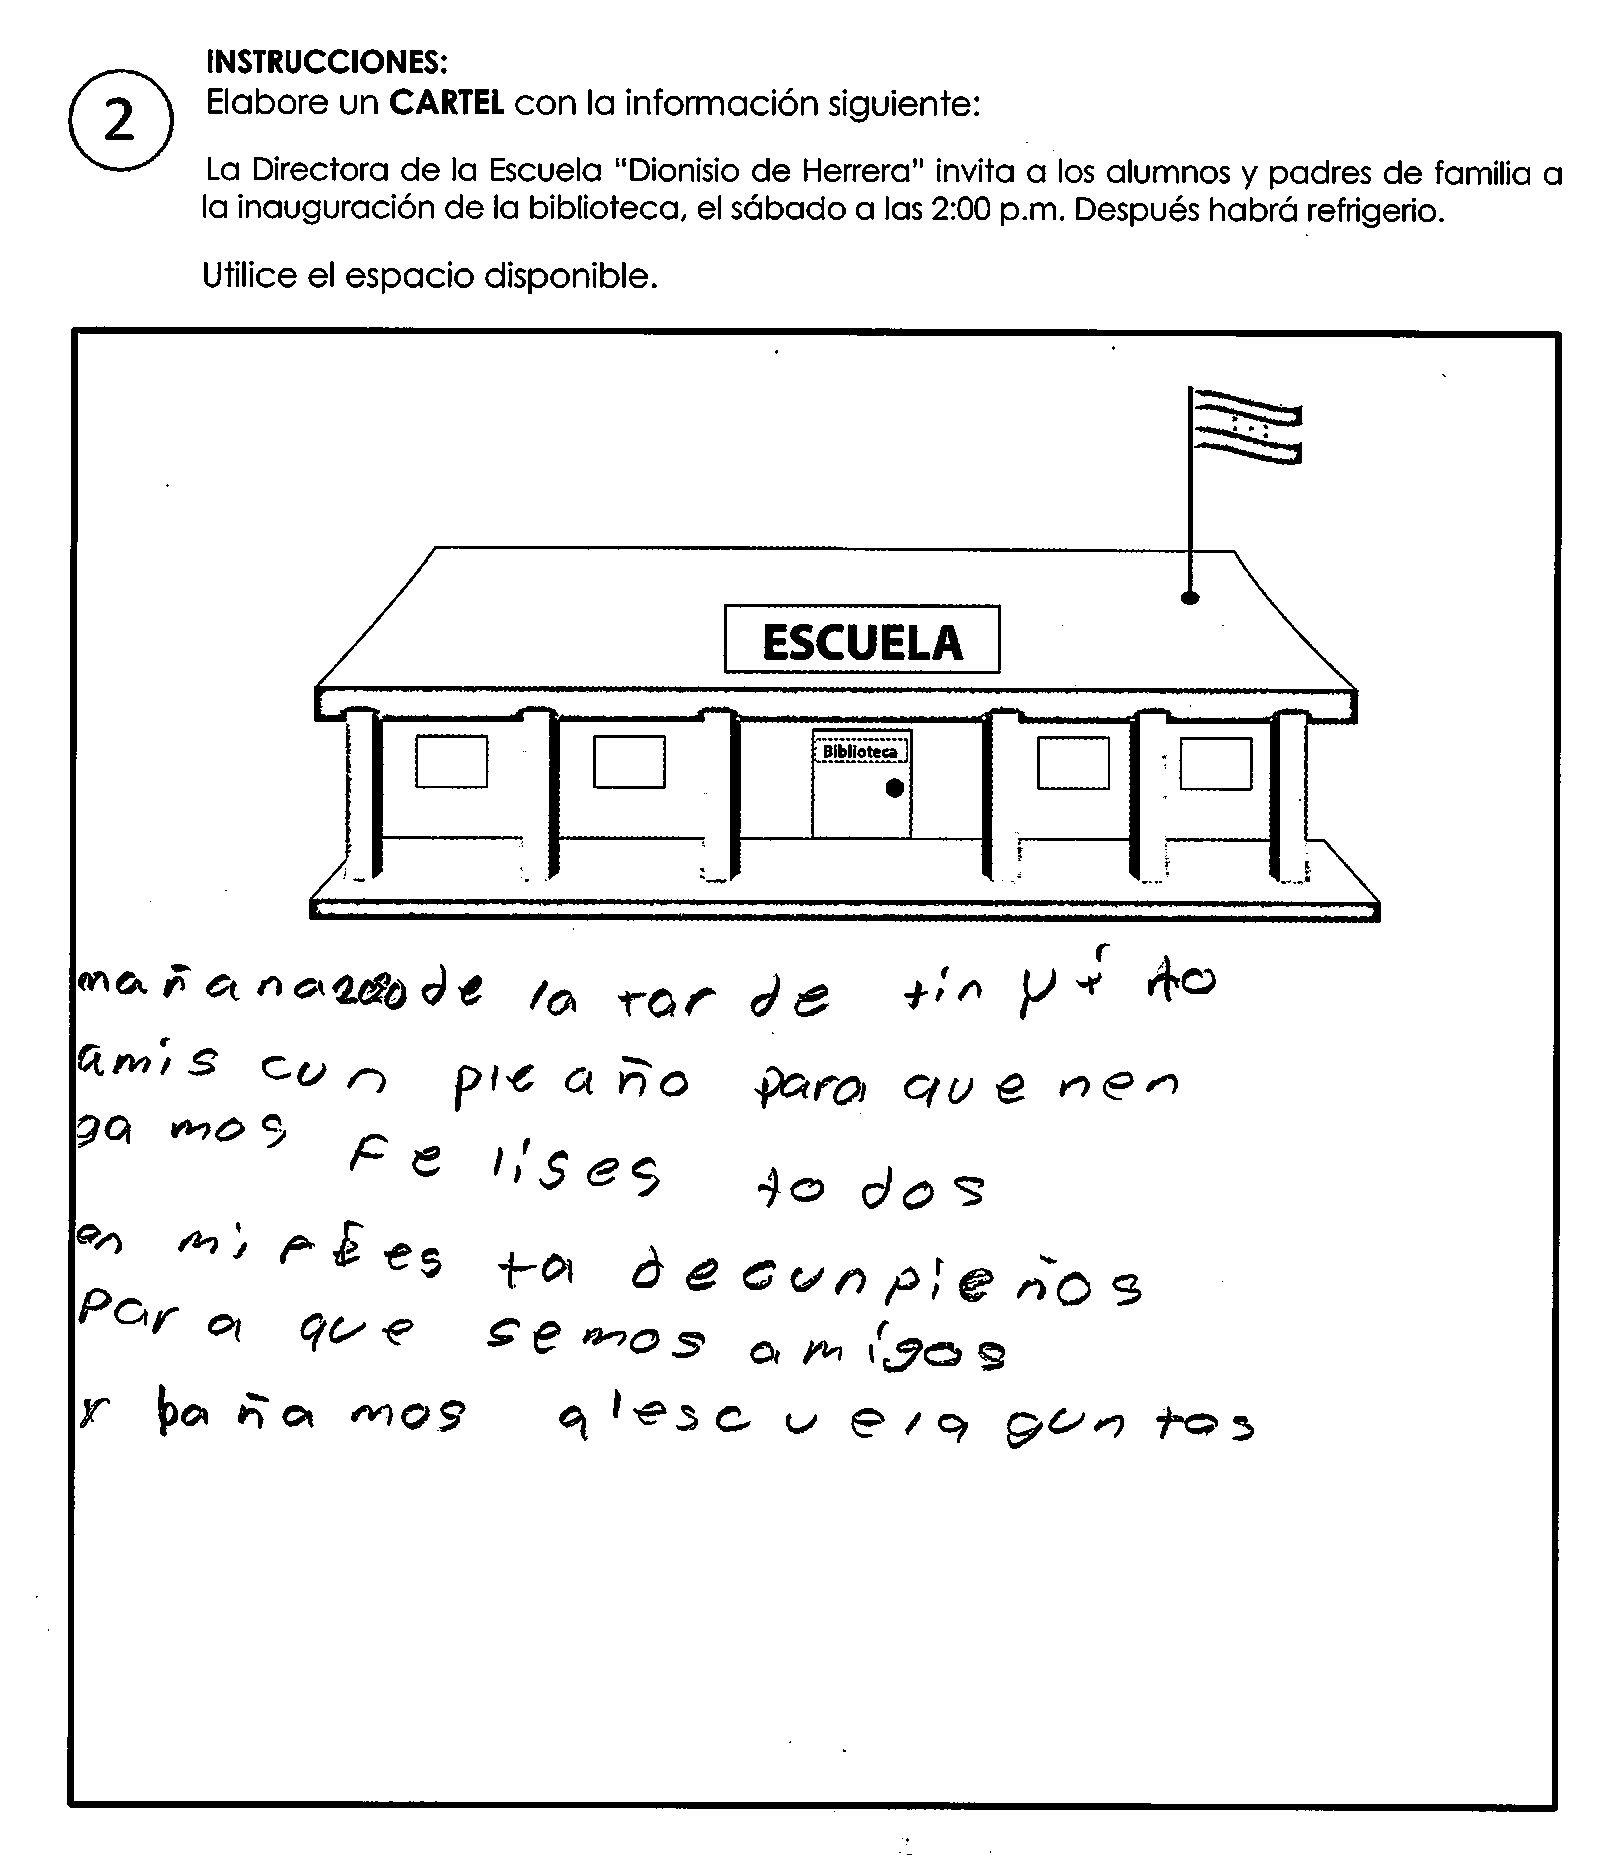 INSTRUCCIONES:
2
Elabore un CARTEL con la información siguiente:
La Directora de la Escuela "Dionisio de Herrera" invita a los alumnos y padres de familia a
la inauguración de la biblioteca, el sábado a las 2:00 p.m. Después habrá refrigerio.
Utilice el espacio disponible.
ESCUELA
Biblioteca
mañana 200 de la tar de tin vi to
amis cun pie año para que nen
ga mos Fe lises to dos
en mi fies ta de cunpieños
Par a que semos amigos
y bañamos al escuela guntos